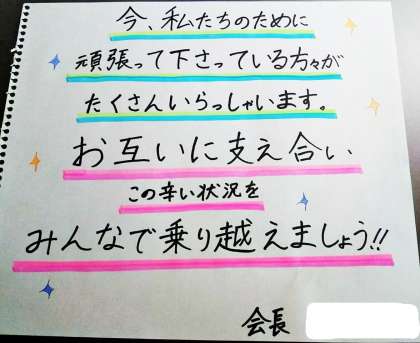 今、私たちのために
頑張って下さっている方々が
たくさんいらっしゃいます。
お互いに支え合い
この辛い状況を
みんなで乗り越えましょう!!
会長